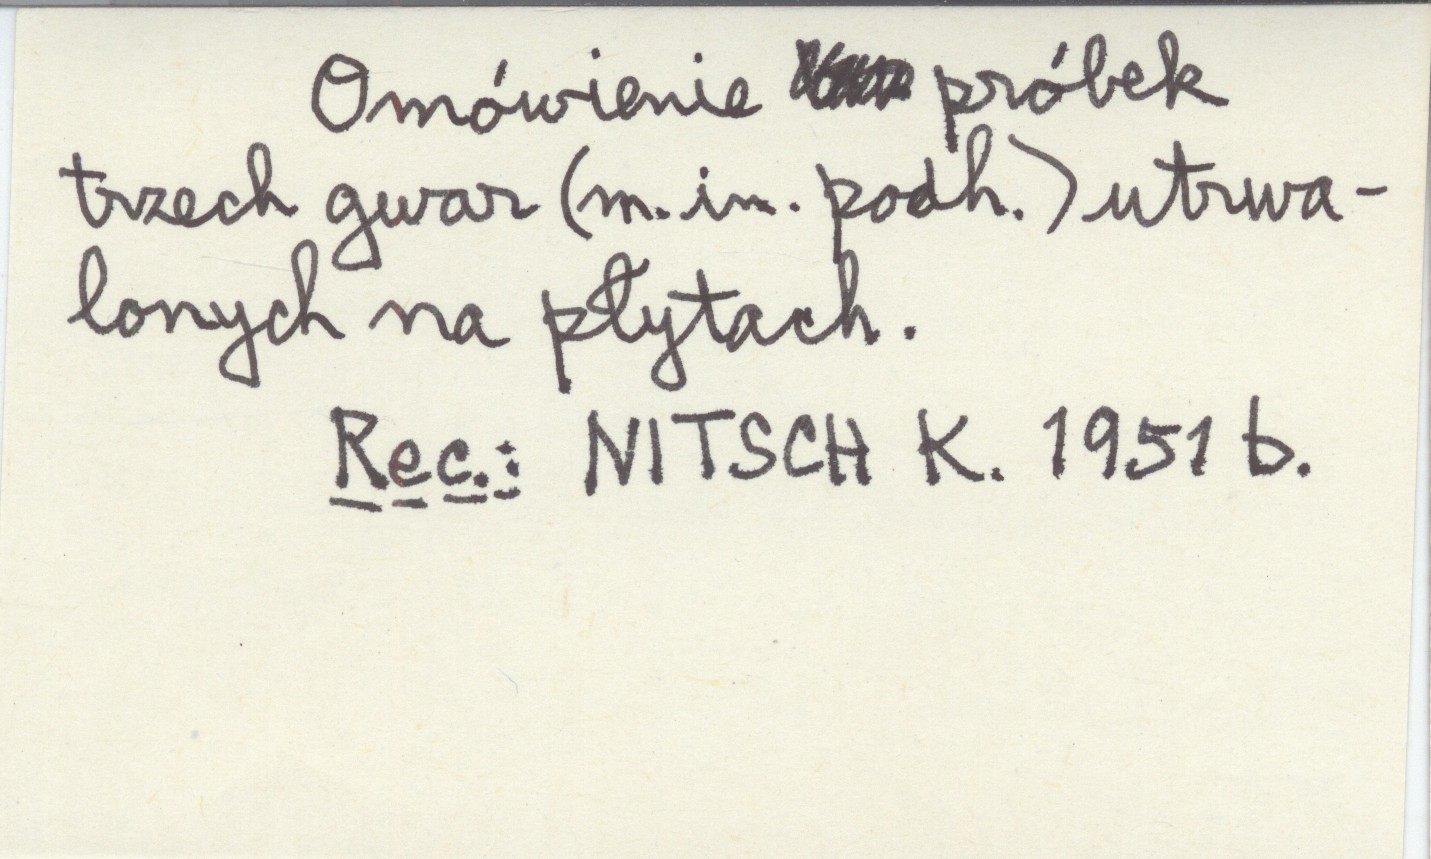 Omówienie próbek
trzech gwar (m.in. podh.) utrwa-
lonych na płytach.
Rec.: NITSCH K. 1951 b.